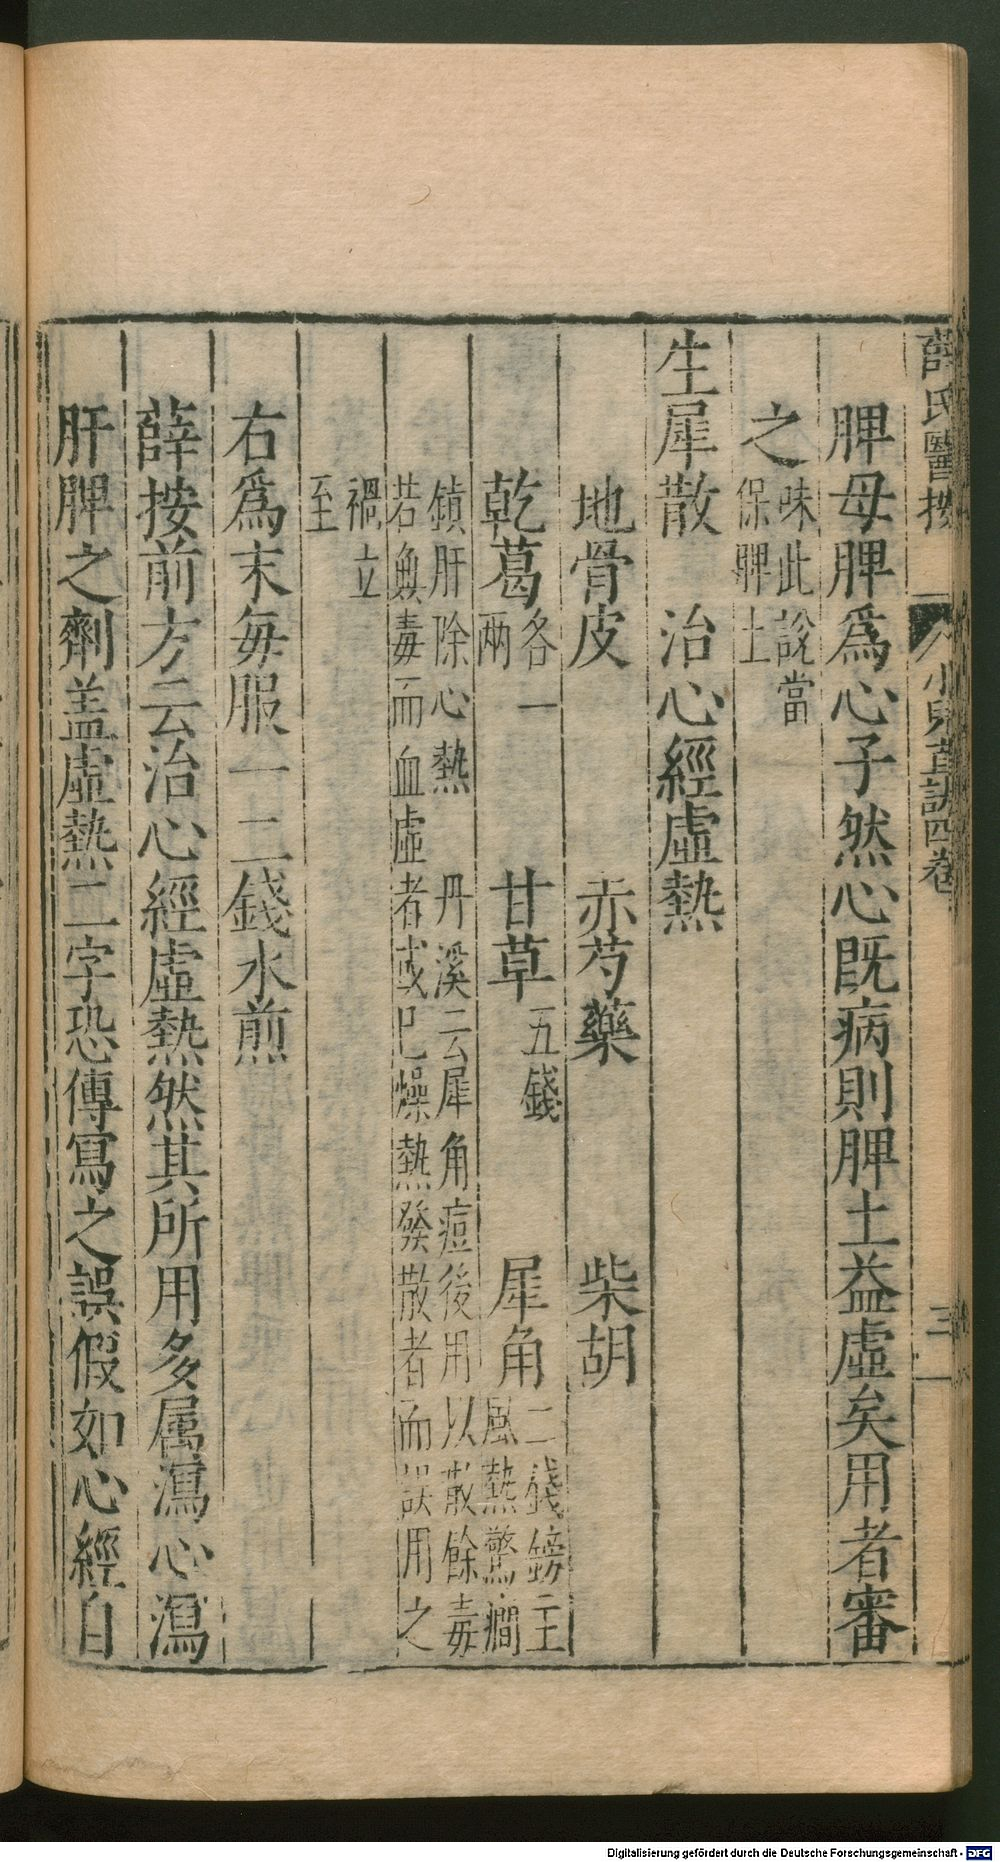 薛氏醫按 小兒直訣四卷 三
脾母脾爲心子然心旣病則脾土益虛矣用者審
之味此說當
保脾土
生犀散 治心經虛熱
地骨皮 赤芍藥 柴胡
乾葛各一
兩 甘草五錢 犀角二錢鎊主
風熱驚癎
鎮肝除心熱 丹溪云犀角痘後用以散餘毒
若無毒而血虛者或已燥熱發散者而誤用之
禍立
至
右爲末每服一二錢水煎
薛按前方云治心經虛熱然其所用多属瀉心瀉
肝脾之劑盖虛熱二字恐傳寫之誤假如心經自
Digitalisierung gefördert durch die Deutsche Forschungsgemeinschaft - DFG